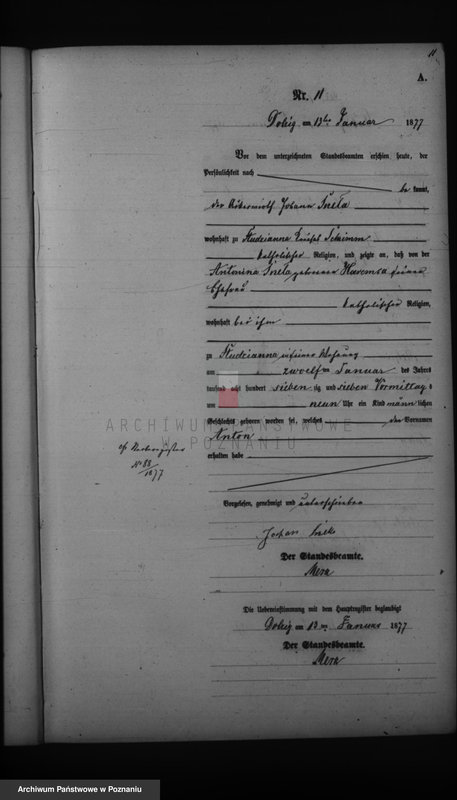 11
A.
Nr. 11
Dolzig am 13ten Januar 1877
Vor dem unterzeichneten Standesbeamten erschien heute, der
Persönlichkeit nach
be kannt,
der Ackerwirth Johann
wohnhaft zu Studzianna Kreisel Schrimm
katholischer Religion, und zeigte an, daß von der
Antonina geborenen seiner
Ehefrau
katholischer Religion,
wohnhaft bei ihm
zu Studzianna in seiner Wohnung
am zwoelften Januar des Jahres
tausend acht hundert sieben zig und sieben Vormittags
um neun Uhr ein Kind männ lichen
Geschlechts geboren worden sei, welches den Vornamen
Anton
erhalten habe
ARCHIWUM PAŃSTWOWE
W POZNANIU
cf Sterberegister
No 88
1877
Vorgelesen, genehmigt und unterschrieben
Der Standesbeamte.
Merz
Die Uebereinstimmung mit dem Hauptregister beglaubigt
Dolzig am 13ten Januar 1877
Der Standesbeamte.
Merz
Archiwum Państwowe w Poznaniu